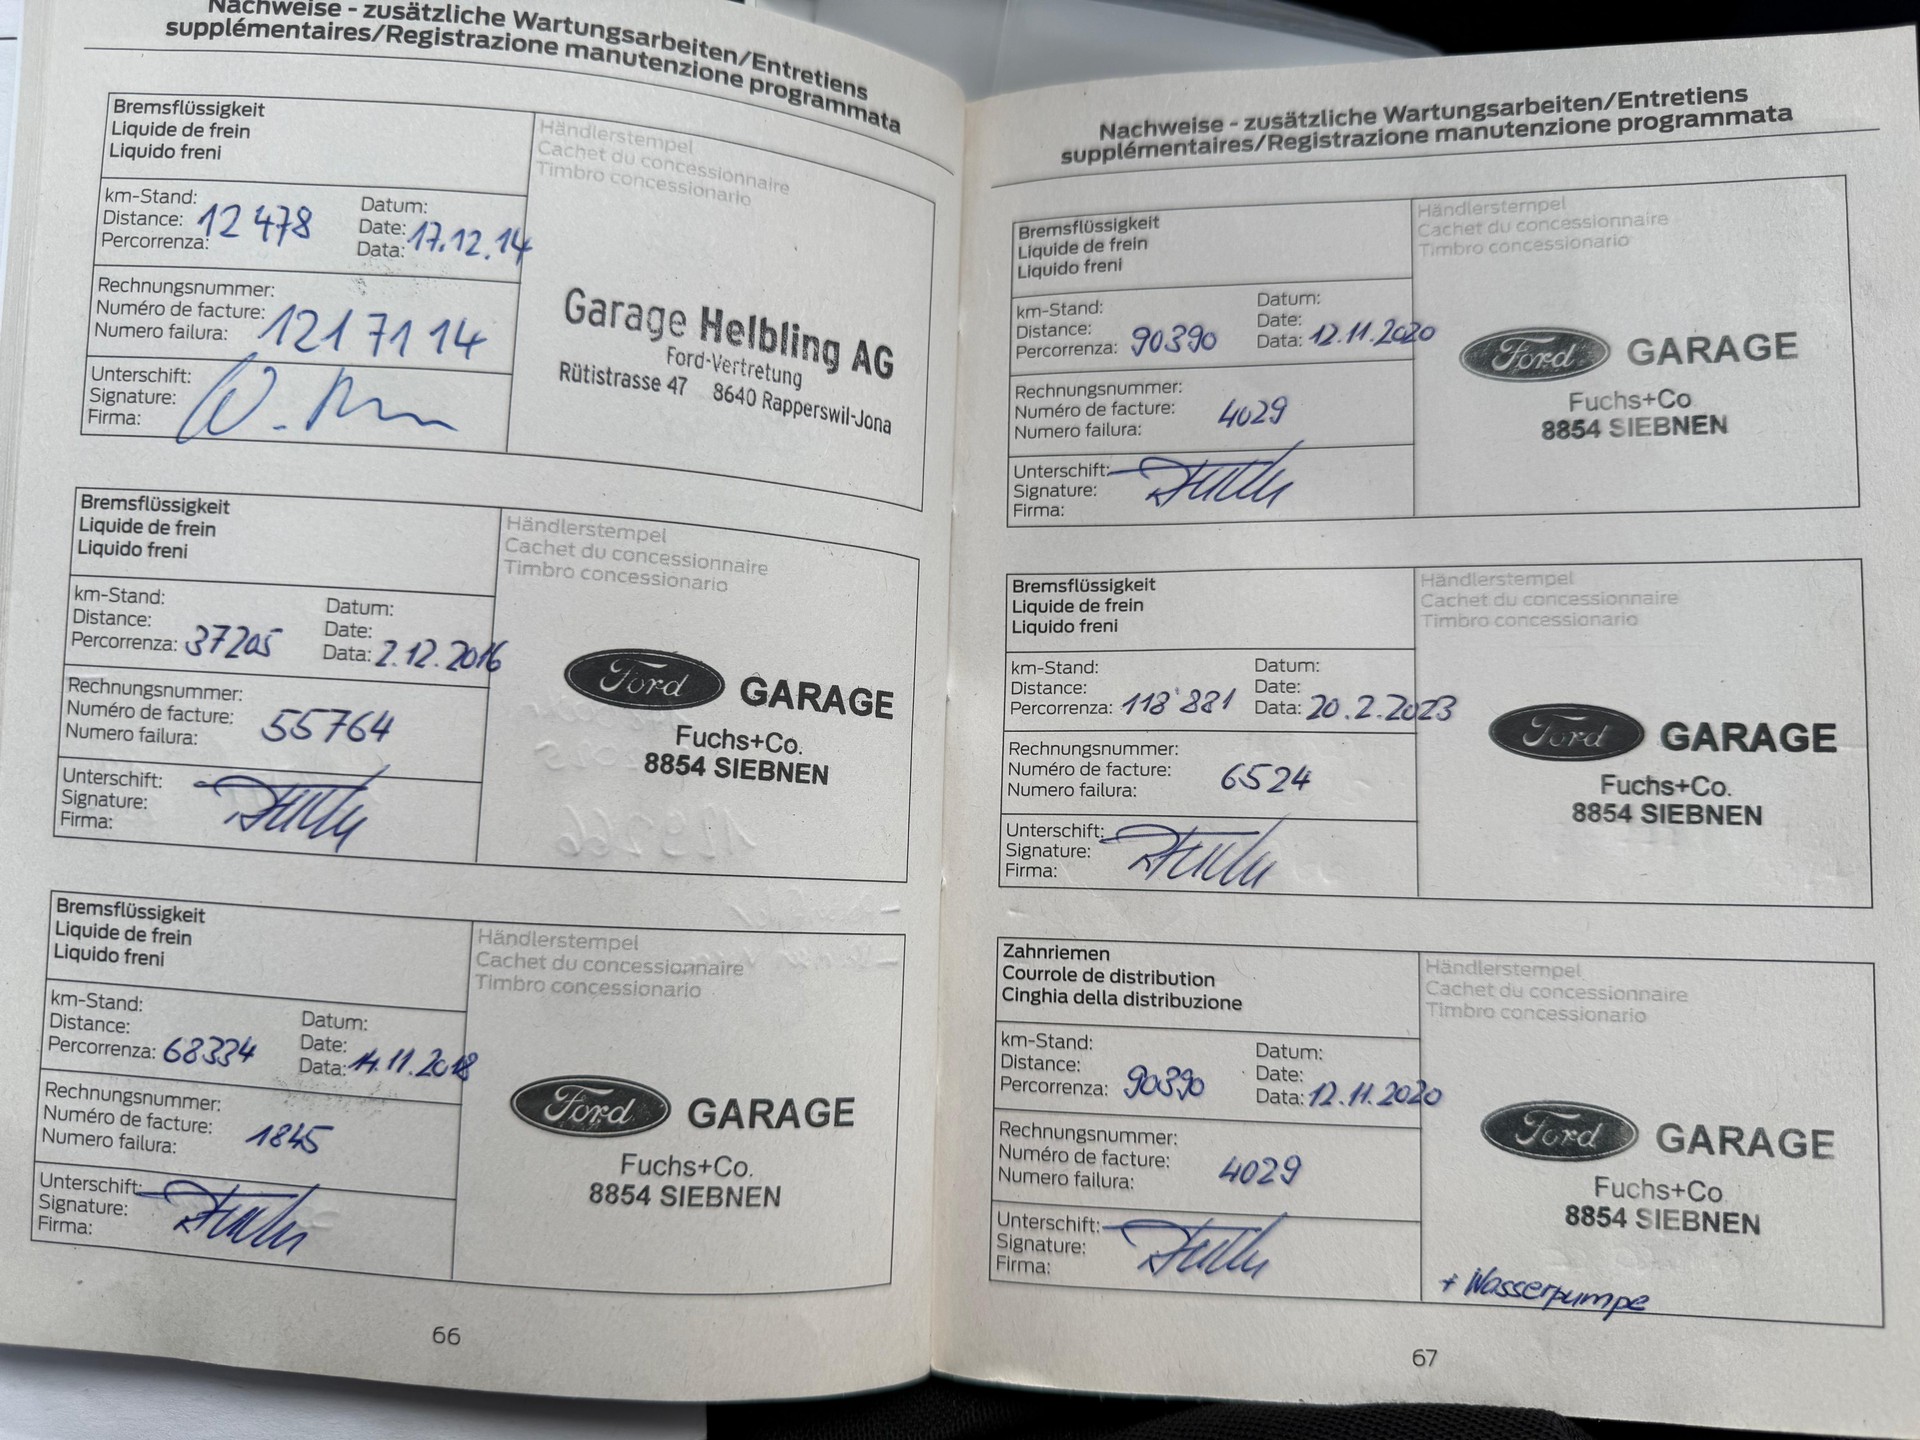 Nachweise - zusätzliche Wartungsarbeiten/Entretiens
supplémentaires/Registrazione manutenzione programmata
Bremsflüssigkeit
Liquide de frein
Liquido freni
Händlerstempel
Cachet du concessionnaire
Timbro concessionario
km-Stand:
Distance: 12 478
Percorrenza:
Datum:
Date: 17.12.14
Data:
Rechnungsnummer:
Numéro de facture: 1217114
Numero failura:
Unterschift:
Signature:
Firma:
Garage Helbling AG
Ford-Vertretung
Rütistrasse 47 8640 Rapperswil-Jona
Bremsflüssigkeit
Liquide de frein
Liquido freni
Händlerstempel
Cachet du concessionnaire
Timbro concessionario
km-Stand:
Distance:
Percorrenza: 37205
Datum:
Date:
Data: 2.12.2016
Rechnungsnummer:
Numéro de facture: 55764
Numero failura:
Unterschift:
Signature:
Firma:
Ford GARAGE
Fuchs+Co.
8854 SIEBNEN
Bremsflüssigkeit
Liquide de frein
Liquido freni
Händlerstempel
Cachet du concessionnaire
Timbro concessionario
km-Stand:
Distance:
Percorrenza: 68334
Datum:
Date:
Data: 14.11.2018
Rechnungsnummer:
Numéro de facture: 1845
Numero failura:
Unterschift:
Signature:
Firma:
Ford GARAGE
Fuchs+Co.
8854 SIEBNEN
66
Nachweise - zusätzliche Wartungsarbeiten/Entretiens
supplémentaires/Registrazione manutenzione programmata
Bremsflüssigkeit
Liquide de frein
Liquido freni
Händlerstempel
Cachet du concessionnaire
Timbro concessionario
km-Stand:
Distance:
Percorrenza: 90390
Datum:
Date:
Data: 12.11.2020
Rechnungsnummer:
Numéro de facture: 4029
Numero failura:
Unterschift:
Signature:
Firma:
Ford GARAGE
Fuchs+Co
8854 SIEBNEN
Bremsflüssigkeit
Liquide de frein
Liquido freni
Händlerstempel
Cachet du concessionnaire
Timbro concessionario
km-Stand:
Distance:
Percorrenza: 118'881
Datum:
Date:
Data: 20.2.2023
Rechnungsnummer:
Numéro de facture: 6524
Numero failura:
Unterschift:
Signature:
Firma:
Ford GARAGE
Fuchs+Co.
8854 SIEBNEN
Zahnriemen
Courrole de distribution
Cinghia della distribuzione
Händlerstempel
Cachet du concessionnaire
Timbro concessionario
km-Stand:
Distance:
Percorrenza: 90390
Datum:
Date:
Data: 12.11.2020
Rechnungsnummer:
Numéro de facture: 4029
Numero failura:
Unterschift:
Signature:
Firma:
Ford GARAGE
Fuchs+Co
8854 SIEBNEN
+ Wasserpumpe
67